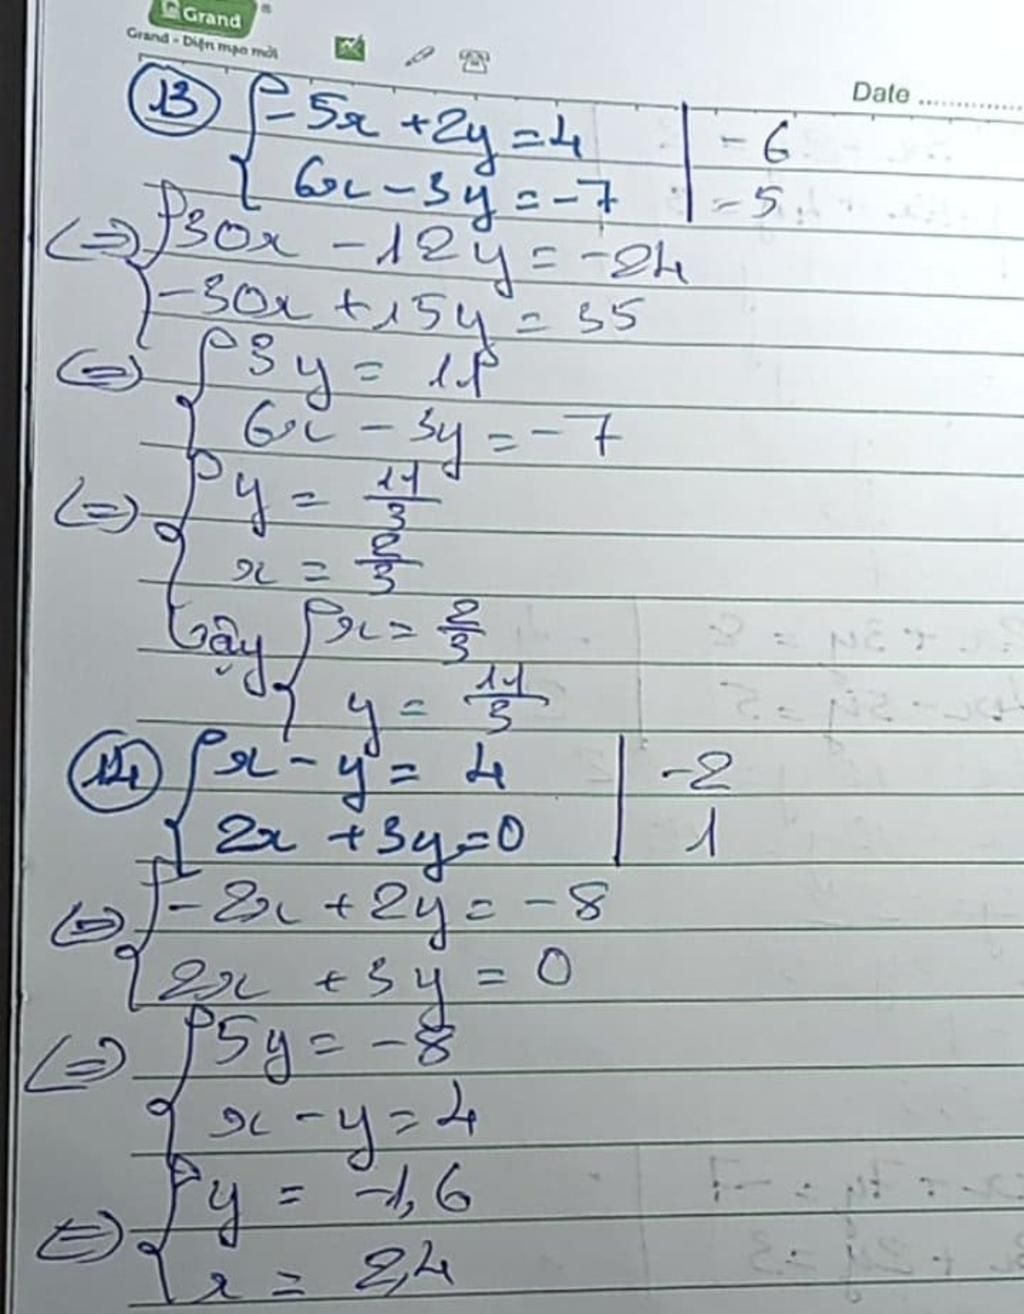 Grand
Grand - Diện mạo mới
Date ..............
13 { -5x + 2y = 4 | -6
6x - 3y = -7 | -5
(=) { 30x - 12y = -24
-30x + 15y = 35
(=) { 3y = 11
6x - 3y = -7
(=) { y = 11/3
x = 2/3
Vậy { x = 2/3
y = 11/3
14 { x - y = 4 | -2
2x + 3y = 0 | 1
(=) { -2x + 2y = -8
2x + 3y = 0
(=) { 5y = -8
x - y = 4
(=) { y = -1,6
x = 2,4